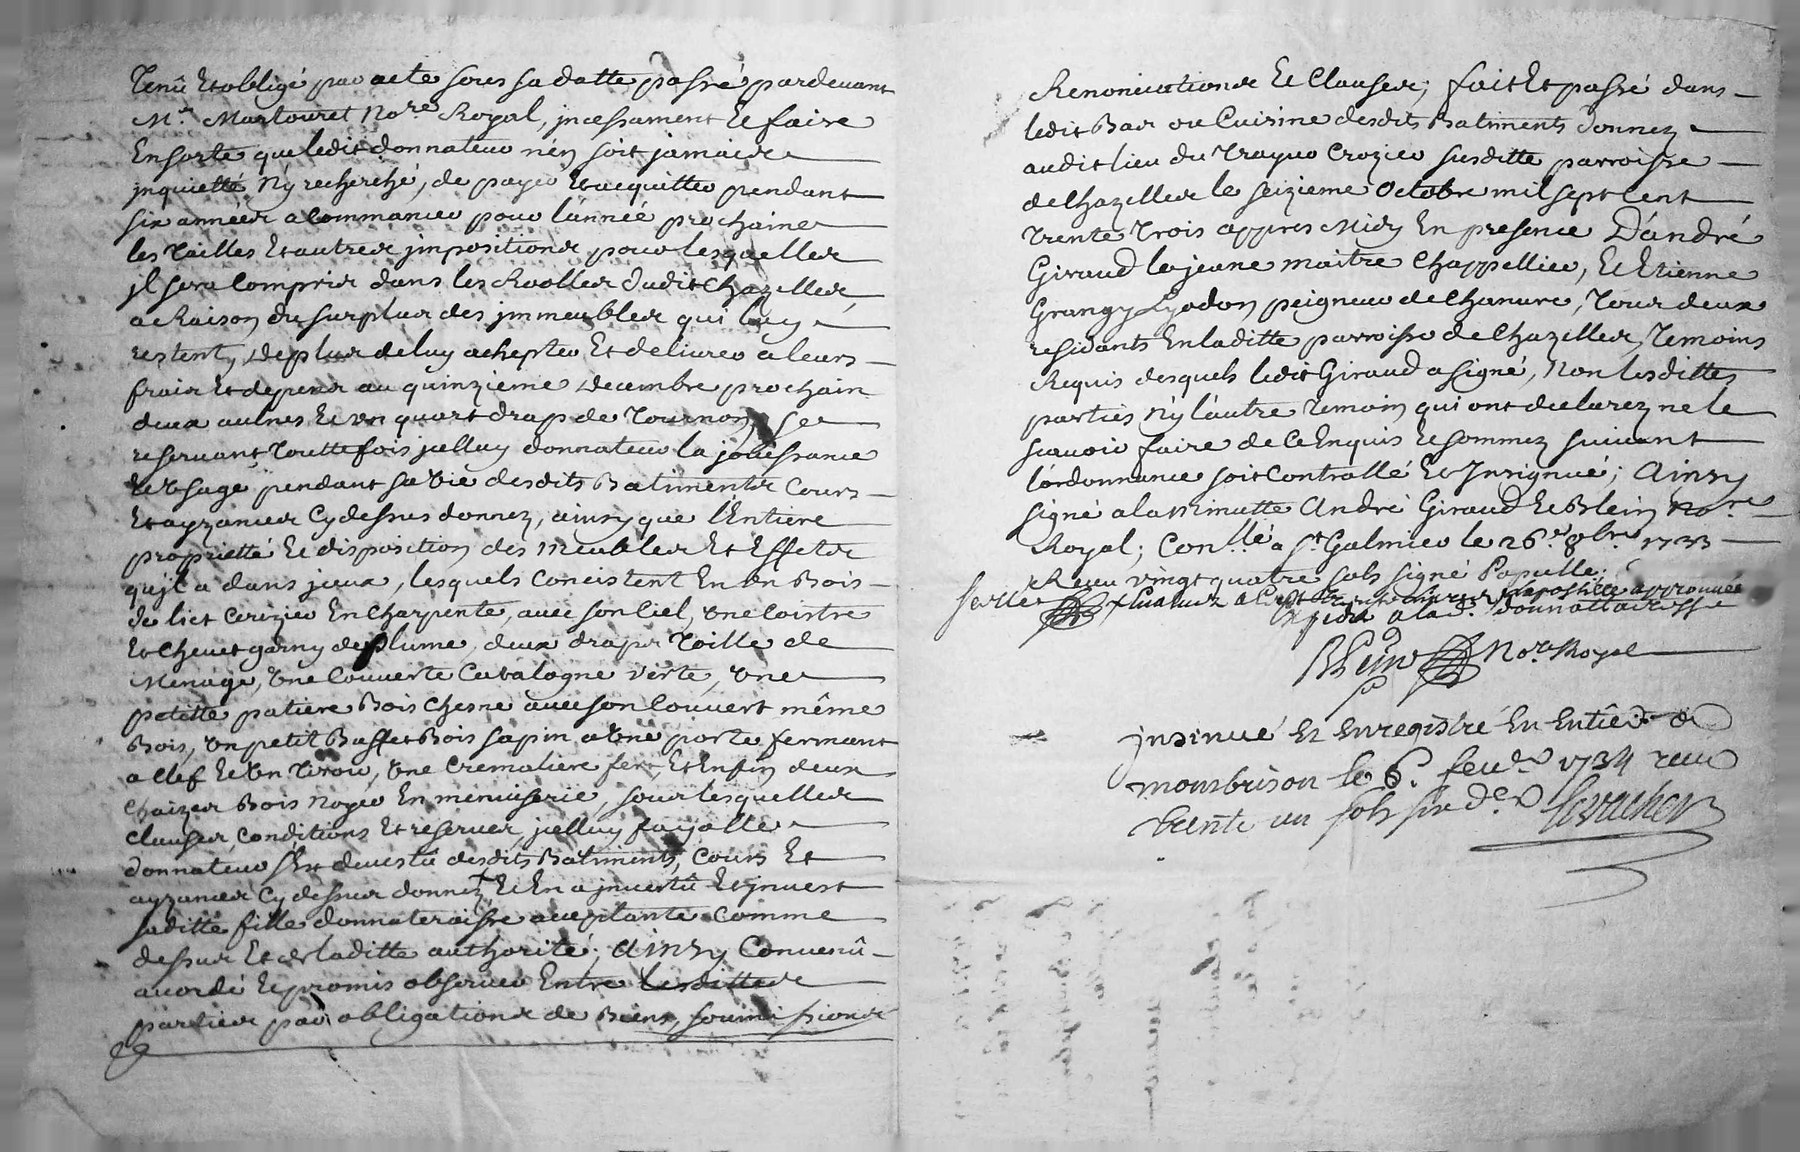 Tenû Et obligé par acte sous sa datte passé pardevant
Mr. Martouret Nore. Royal, jncessament Et faire
Ensorte que ledit donnateur n'en soit jamais
jnquietté N'y recherché, de payer Et acquitter pendant
six années a Commancer pour l'année prochaine
les Tailles Et autres jmpositions pour lesquelles
jl sera Compris dans les Roolles dudit Chazelles,
a Raison du surplus des jmmeubles qui luy
restent, de plus de luy achepter Et delivrer a leurs
frais Et depens au quinzieme decembre prochain
deux aulnes Et un quart drap de Tournon, se
reservant Touttefois jcelluy donnateur la joüissance
Et Usage pendant sa Vie desdits Batiments Cours
Et ayzances Cy dessus donnez, ainsy que l'Entiere
proprietté Et disposition des Meubles Et Effets
qu'jl a dans jceux, lesquels Concistent En Un Bois
de lict Cerizier En Charpente, avec son Ciel, Une Coistre
Et Chevet garny de plume, deux draps Toille de
Menage, Une Couverte Catalogne verte, Une
petitte patiere Bois Chesne avec son Couvert même
Bois, Un petit Buffet Bois sapin a Une porte fermant
a Clef Et Un Tiroir, Une Cremaliere fer, Et Enfin deux
Chaizes Bois Noyer En menuiserie, sous lesquelles
Clauses, Conditions Et reserves, jcelluy fayolle
donnateur s'Est devestû desdits Batiments, Cours Et
ayzances Cy dessus donnez, Et En a jnvestû Et jnvest
saditte fille donnateraisse acceptante Comme
dessus Et de laditte authorité; Ainsy Convenû
accordé Et promis observer Entre lesdittes
parties par obligations de Biens, soumissions
Renonciations Et Clauses; fait Et passé dans
ledit Bas ou Cuisine desdits Batiments donnez
audit lieu du Trayve Crozier susditte parroisse
de Chazelles le seizieme Octobre mil sept Cent
Trente Trois appres Midy En presence D'andré
Giraud le jeune maitre Chappellier, Et Etienne
Grangy Lyodon peigneur de Chanvre, Tous deux
residants En laditte parroisse de Chazelles, Temoins
Requis desquels ledit Giraud a signé, Non lesdittes
parties N'y l'autre Temoin qui ont declarez ne le
scavoir faire de Ce Enquis Et sommez suivant
l'ordonnance soit Controllé Et Insignué; Ainsy
signé a la Minutte André Giraud Et Blein Nore.
Royal; Con.llé a St. Galmier le 26e. 8bre. 1733
Receu vingt quatre sols signé Papulle.
Expedié a lad. donnattairesse
Blein Nore. Royal
jnsinué Et Enregistré En Entier a
montbrison le 6. feuer. 1734 receu
trente un sols six d.